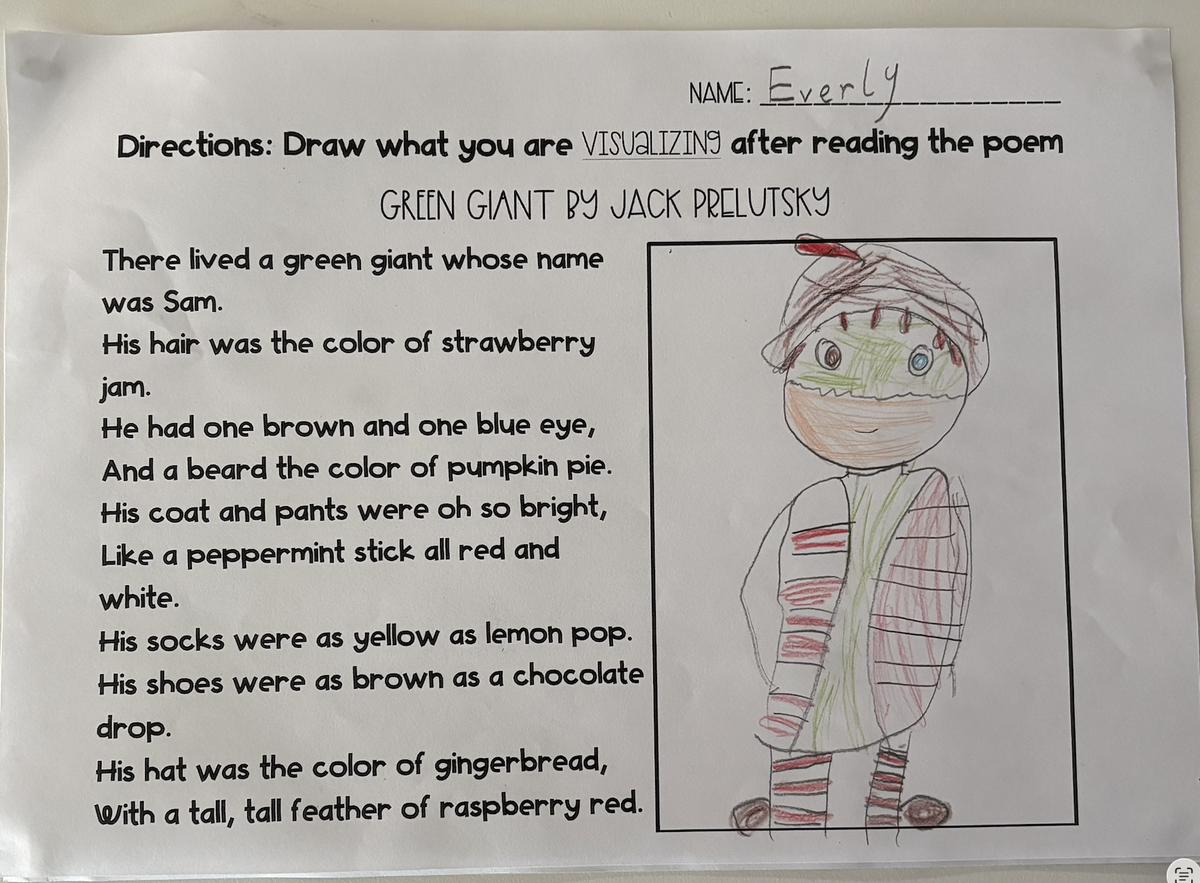 NAME: Everly
Directions: Draw what you are VISUALIZING after reading the poem
GREEN GIANT BY JACK PRELUTSKY
There lived a green giant whose name
was Sam.
His hair was the color of strawberry
jam.
He had one brown and one blue eye,
And a beard the color of pumpkin pie.
His coat and pants were oh so bright,
Like a peppermint stick all red and
white.
His socks were as yellow as lemon pop.
His shoes were as brown as a chocolate
drop.
His hat was the color of gingerbread,
With a tall, tall feather of raspberry red.